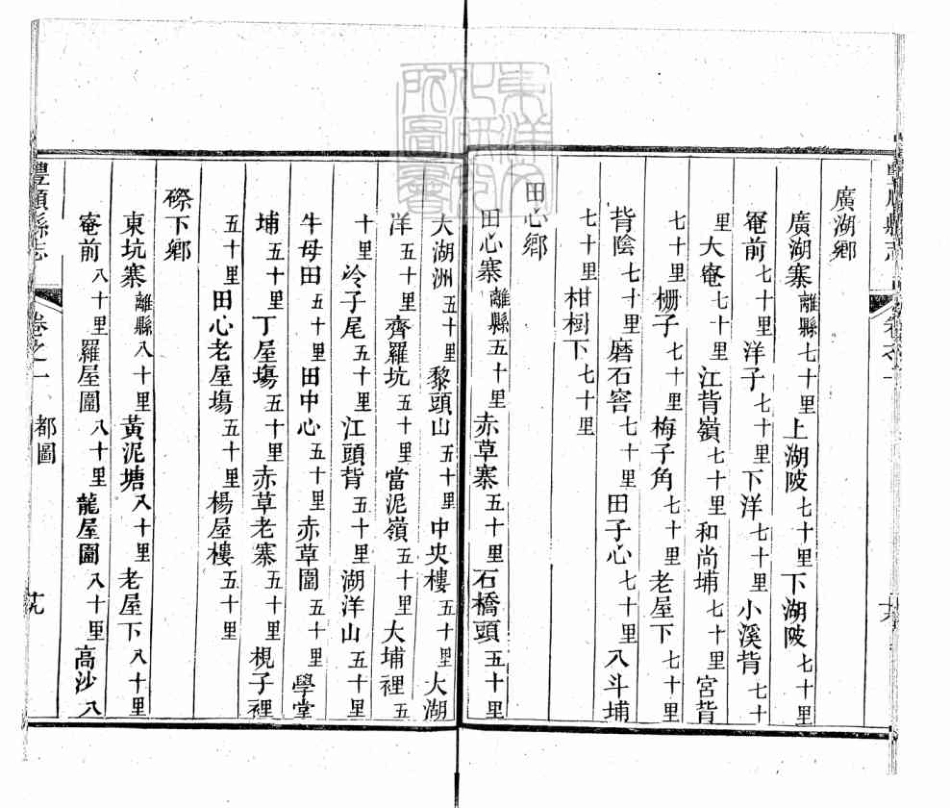 廣湖鄉
廣湖寨離縣七十里上湖陂七十里下湖陂七十里
菴前七十里洋子七十里下洋七十里小溪背七十
里大菴七十里江背嶺七十里和尚埔七十里宮背
七十里柵子七十里梅子角七十里老屋下七十里
背陰七十里磨石窖七十里田子心七十里八斗埔
七十里柑樹下七十里
田心鄉
田心寨離縣五十里赤草寨五十里石橋頭五十里
大湖洲五十里黎頭山五十里中央樓五十里大湖
洋五十里齊羅坑五十里當泥嶺五十里大埔裡五
十里冷子尾五十里江頭背五十里湖洋山五十里
牛母田五十里田中心五十里赤草圖五十里學堂
埔五十里丁屋塲五十里赤草老寨五十里梘子裡
五十里田心老屋塲五十里楊屋樓五十里
磜下鄉
東坑寨離縣八十里黃泥塘八十里老屋下八十里
菴前八十里羅屋圖八十里龍屋圖八十里高沙八
豐順縣志
卷之一
都圖
十九
東洋文化研究所圖書